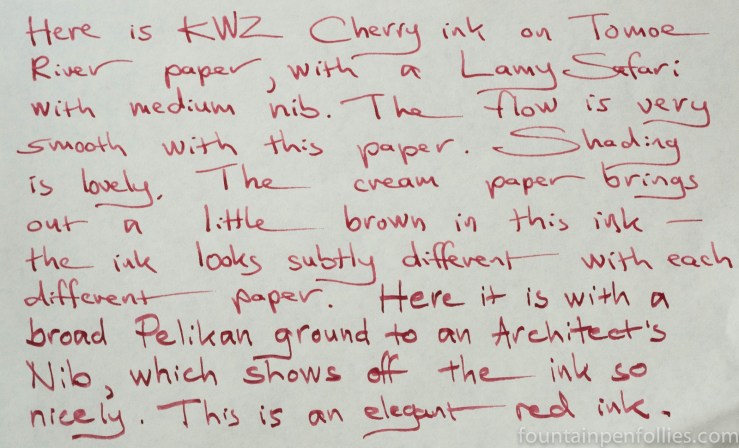 Here is KWZ Cherry ink on Tomoe
River paper, with a Lamy Safari
with medium nib. The flow is very
smooth with this paper. Shading
is lovely. The cream paper brings
out a little brown in this ink —
the ink looks subtly different with each
different paper. Here it is with a
broad Pelikan ground to an Architect's
Nib, which shows off the ink so
nicely. This is an elegant red ink.
fountainpenfollies.com